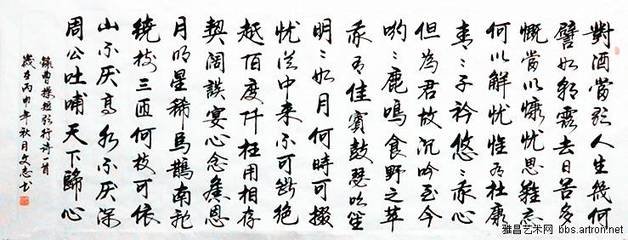 對酒當歌人生幾何
譬如朝露去日苦多
慨當以慷憂思難忘
何以解憂惟有杜康
青々子衿悠々我心
但為君故沉吟至今
呦々鹿鳴食野之苹
我有佳賓鼓瑟吹笙
明々如月何時可掇
憂從中来不可斷絶
越陌度阡枉用相存
契闊談宴心念舊恩
月明星稀烏鵲南飛
繞枝三匝何枝可依
山不厌高水不厌深
周公吐哺天下歸心
錄曹操短歌行詩一首
歲在丙申年秋月文志书
雅昌艺术网 bbs.artron.net